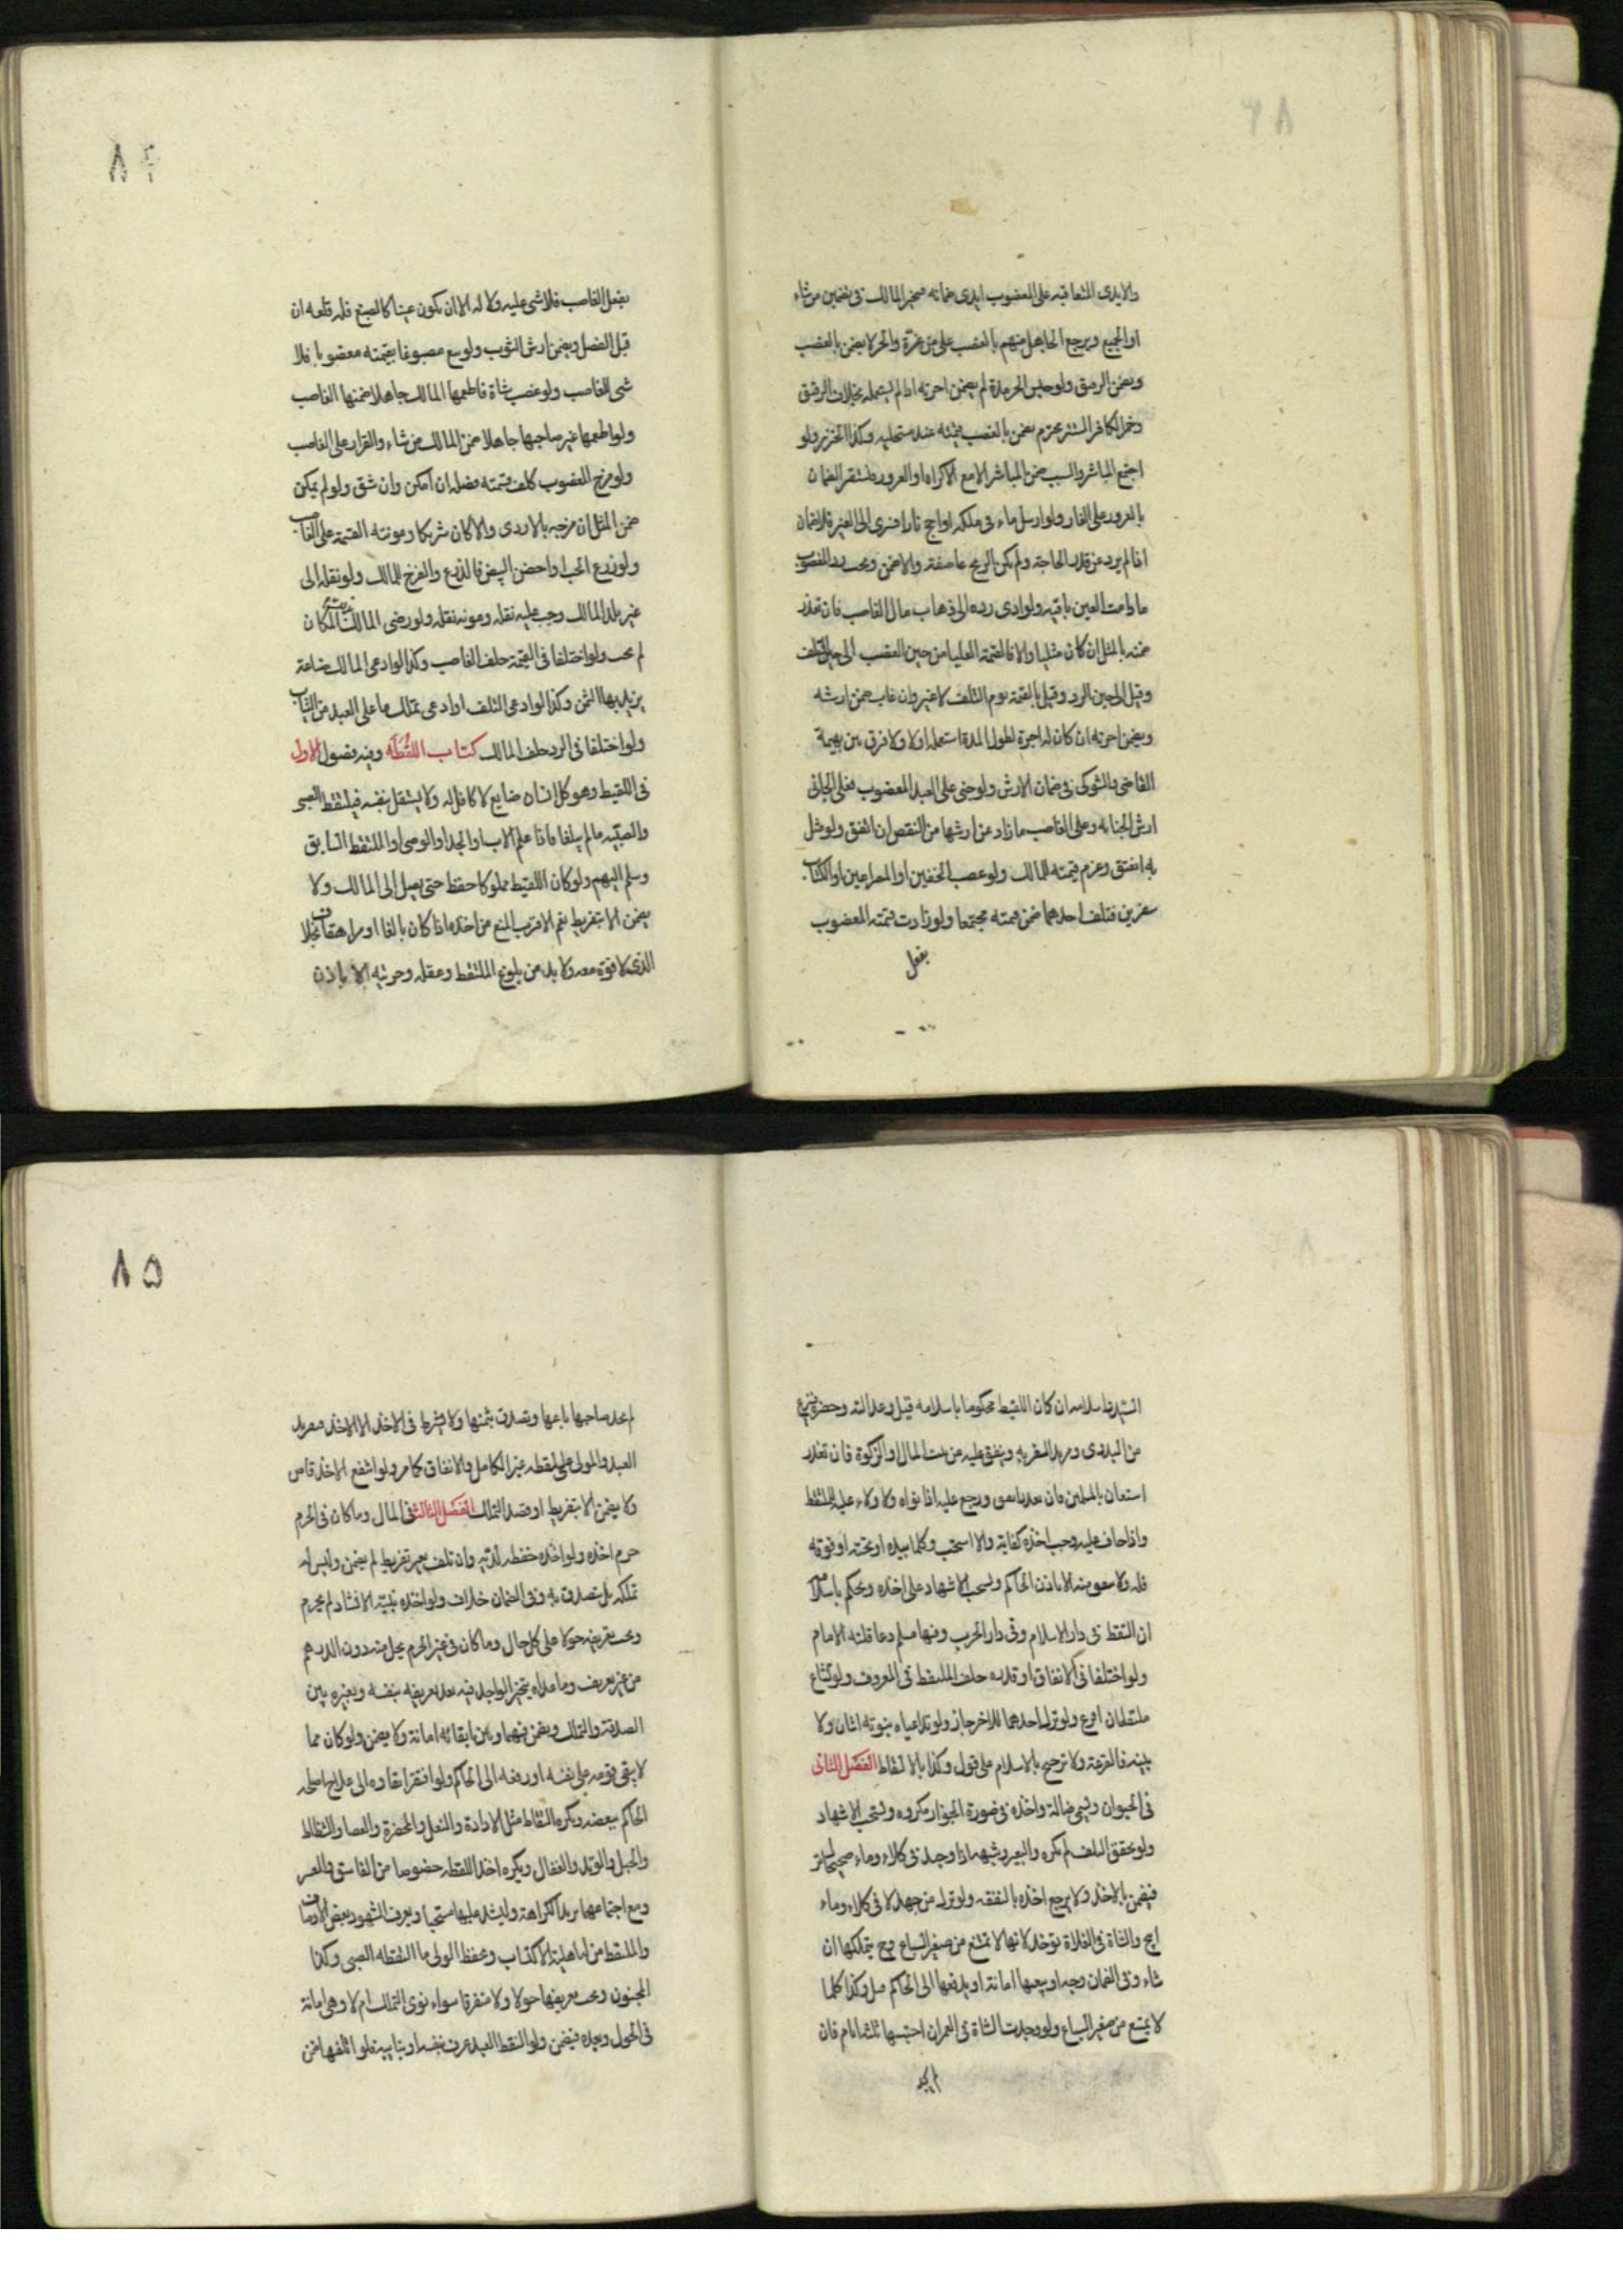 والايدى المتعاقبه على المغصوب ايدى ضمانه فيتخير المالك فى تضمين من شاء
او الجميع ويرجع الجاهل منهم بالغصب على من غره والحر لا يضمن بالغصب
ويضمن الرقيق ولو حبس الحر مدة لم يضمن اجرته اذا لم يستعمله بخلاف الرقيق
وخمر الكافر المستتر محترم يضمن بالغصب بقيمته عند مستحليه وكذا الخنزير ولو
اجتمع المباشر والسبب ضمن المباشر الا مع الاكراه او الغرور فيستقر الضمان
بالغرور على الغار ولو ارسل ماء فى ملكه او اجج نارا فسرى الى الغير فلا ضمان
اذا لم يزد عن قدر الحاجة ولم تكن الريح عاصفة والا ضمن ويجب رد المغصوب
ما دامت العين باقيه ولو ادى رده الى ذهاب مال الغاصب فان تعذر
ضمنه بالمثل ان كان مثليا والا فالقيمة العليا من حين الغصب الى حين التلف
وقيل الى حين الرد وقيل بالقيمة يوم التلف لا غير وان عاب ضمن ارشه
ويضمن اجرته ان كان له اجرة لطول المدة استعمله او لا ولا فرق بين بهيمة
القاضى والشوكى فى ضمان الارش ولو جنى على العبد المغصوب فعلى الجانى
ارش الجنايه وعلى الغاصب ما زاد عن ارشها من النقص ان اتفق ولو مثل
به انعتق وغرم قيمته للمالك ولو غصب الخفين او المصراعين او الكتاب
سفرين فتلف احدهما ضمن قيمته مجتمعا ولو زادت قيمته المغصوب
بفعل
٨٤
بفعل الغاصب فلا شى عليه ولا له الا ان يكون عينا كالصبغ فله قلعه ان
قبل الفصل ويضمن ارش الثوب ولو بيع مصبوغا بقيمته مغصوبا فلا
شى للغاصب ولو غصب شاة فاطعمها المالك جاهلا ضمنها الغاصب
ولو اطعمها غير صاحبها جاهلا ضمن المالك من شاء والقرار على الغاصب
ولو مزج المغصوب كلف قسمته فصله ان امكن وان شق ولو لم يمكن
ضمن المثل ان مزجه بالاردى والا كان شريكا ومونته القسمة على الغاصب
ولو زرع الحب او احضن البيض فالزرع والفرخ للمالك ولو نقله الى
غير بلد المالك وجب عليه نقله ومونه نقله ولو رضى المالك بذلك المكان
لم يجب ولو اختلفا فى القيمة حلف الغاصب وكذا لو ادعى المالك صناعة
يزيد بها الثمن وكذا لو ادعى التلف او ادعى تملك ما على العبد من الثياب
ولو اختلفا فى الرد حلف المالك كتاب اللقطه وفيه فصول الاول
فى اللقيط وهو كل انسان ضايع لا كافل له ولا يستقل بنفسه فيلتقط الصبى
والصبيه ما لم يبلغا فاذا علم الاب او الجد او الوصى او الملتقط السابق
وسلم اليهم ولو كان اللقيط مملوكا حفظ حتى يصل الى المالك ولا
يضمن الا بتفريط نعم الاقرب المنع من اخذه اذا كان بالغا او مراهقا بخلاف
الذى لا قوة معه ولا بد من بلوغ الملتقط وعقله وحريته الا باذن
السيد واسلامه ان كان اللقيط محكوما باسلامه قيل وعدالته وحضره
من البدوى ومريد السفر به وينفق عليه من بيت المال او الزكوة فان تعذر
استعان بالمسلمين فان تعذر انفق ورجع عليه اذا نواه ولا ولاء عليه للملتقط
واذا خاف عليه وجب اخذه كفاية والا استحب وكلما بيده او تحته او فوقه
فله ولا ينفق منه الا باذن الحاكم ويستحب الاشهاد على اخذه ويحكم باسلامه
ان التقط فى دار الاسلام وفى دار الحرب وفيها مسلم وعاقلته الامام
ولو اختلفا فى الانفاق او قدره حلف الملتقط فى المعروف ولو تشاح
ملتقطان اقرع ولو ترك احدهما للاخر جاز ولو تداعياه ببنوته اثنان ولا
بينه فالقرعة ولا ترجيح بالاسلام على قول وكذا بالالتقاط الفصل الثانى
فى الحيوان ويسمى ضالة واخذه فى صورة الجواز مكروه ويستحب الاشهاد
ولو تحقق التلف لم يكره والبعير وشبهه اذا وجد فى كلاء وماء صحيحا ترك
فيضمن بالاخذ ولا يرجع اخذه بالنفقه ولو ترك من جهد لا فى كلاء وماء
ابيح والشاة فى الفلاة تؤخذ لانها لا تمتنع من صغير السباع وح يتملكها ان
شاء وفى الضمان وجه او يبقيها امانة او يدفعها الى الحاكم قيل وكذا كلما
لا يمتنع من صغير السباع ولو وجدت الشاة فى العمران احتبسها ثلثه ايام فان
لم يجد
٨٥
لم يجد صاحبها باعها وتصدق بثمنها ولا يشترط فى الاخذ الا الاخذ فيقر يد
العبد والمولى على لقطه غير الكامل والانفاق كما مر ولو انتفع الاخذ قاص
ولا يضمن الا بتفريط او قصد التملك الفصل الثالث فى المال وما كان فى الحرم
حرم اخذه ولو اخذه حفظه لربه وان تلف بغير تفريط لم يضمن وليس له
تملكه بل يتصدق به وفى الضمان خلاف ولو اخذه بنية الانشاد لم يحرم
ويجب تعريفه حولا على كل حال وما كان فى غير الحرم يحل منه دون الدرهم
من غير تعريف وما عداه يتخير الواجد فيه بعد تعريفه بنفسه وبغيره بين
الصدقة والتملك ويضمن فيهما وبين ابقائه امانة ولا يضمن ولو كان مما
لا يبقى قومه على نفسه او رفعه الى الحاكم ولو افتقر ابقاوه الى علاج اصلحه
الحاكم ببعضه ويكره التقاط مثل الاداوة والنعل والمخصرة والعصا والشظاظ
والحبل والوتد والعقال ويكره اخذ اللقطه خصوصا من الفاسق والمعسر
ومع اجتماعهما يزيد الكراهة وليشهد عليها مستحبا ويعرف الشهود بعض الاوصاف
والملتقط من له اهلية الاكتساب ويحفظ الولى ما التقطه الصبى وكذا
المجنون ويجب تعريفها حولا ولا متفرقا سواء نوى التملك ام لا وهى امانة
فى الحول وبعده فيضمن ولو التقط العبد عرف بنفسه او بنائبه فلو اتلفها ضمن